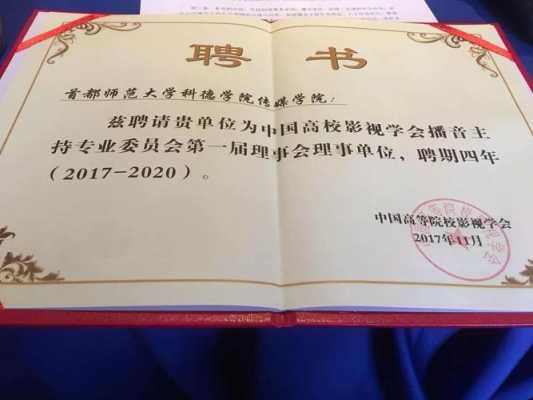 聘书
首都师范大学科德学院传媒学院：
兹聘请贵单位为中国高校影视学会播音主
持专业委员会第一届理事会理事单位，聘期四年
（2017-2020）。
中国高等院校影视学会
2017年11月